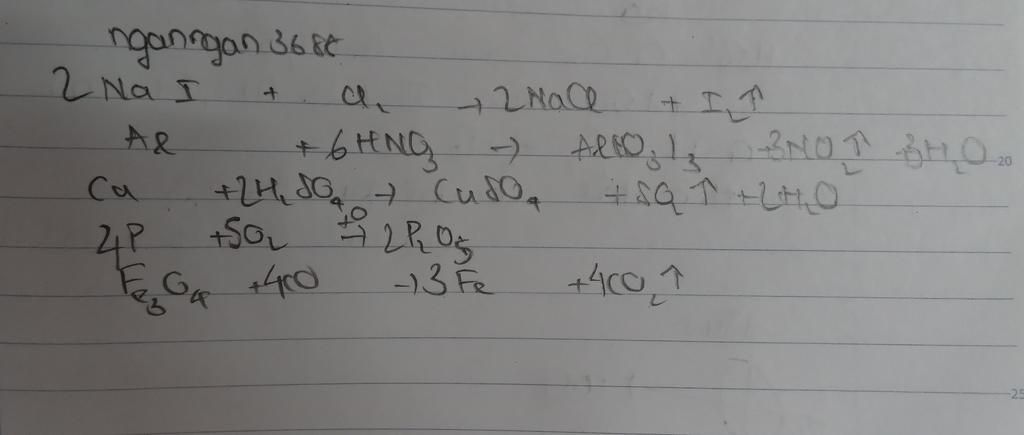 nganngan368t
2NaI + Cl₂ → 2NaCl + I₂↑
Al +6HNO₃ → Al(NO₃)₃ 3NO₂↑ 3H₂O 20
Cu +2H₂SO₄ → CuSO₄ +SO₂↑ +2H₂O
4P +5O₂ t⁰→ 2P₂O₅
Fe₃O₄ +4CO →3Fe +4CO₂↑
25